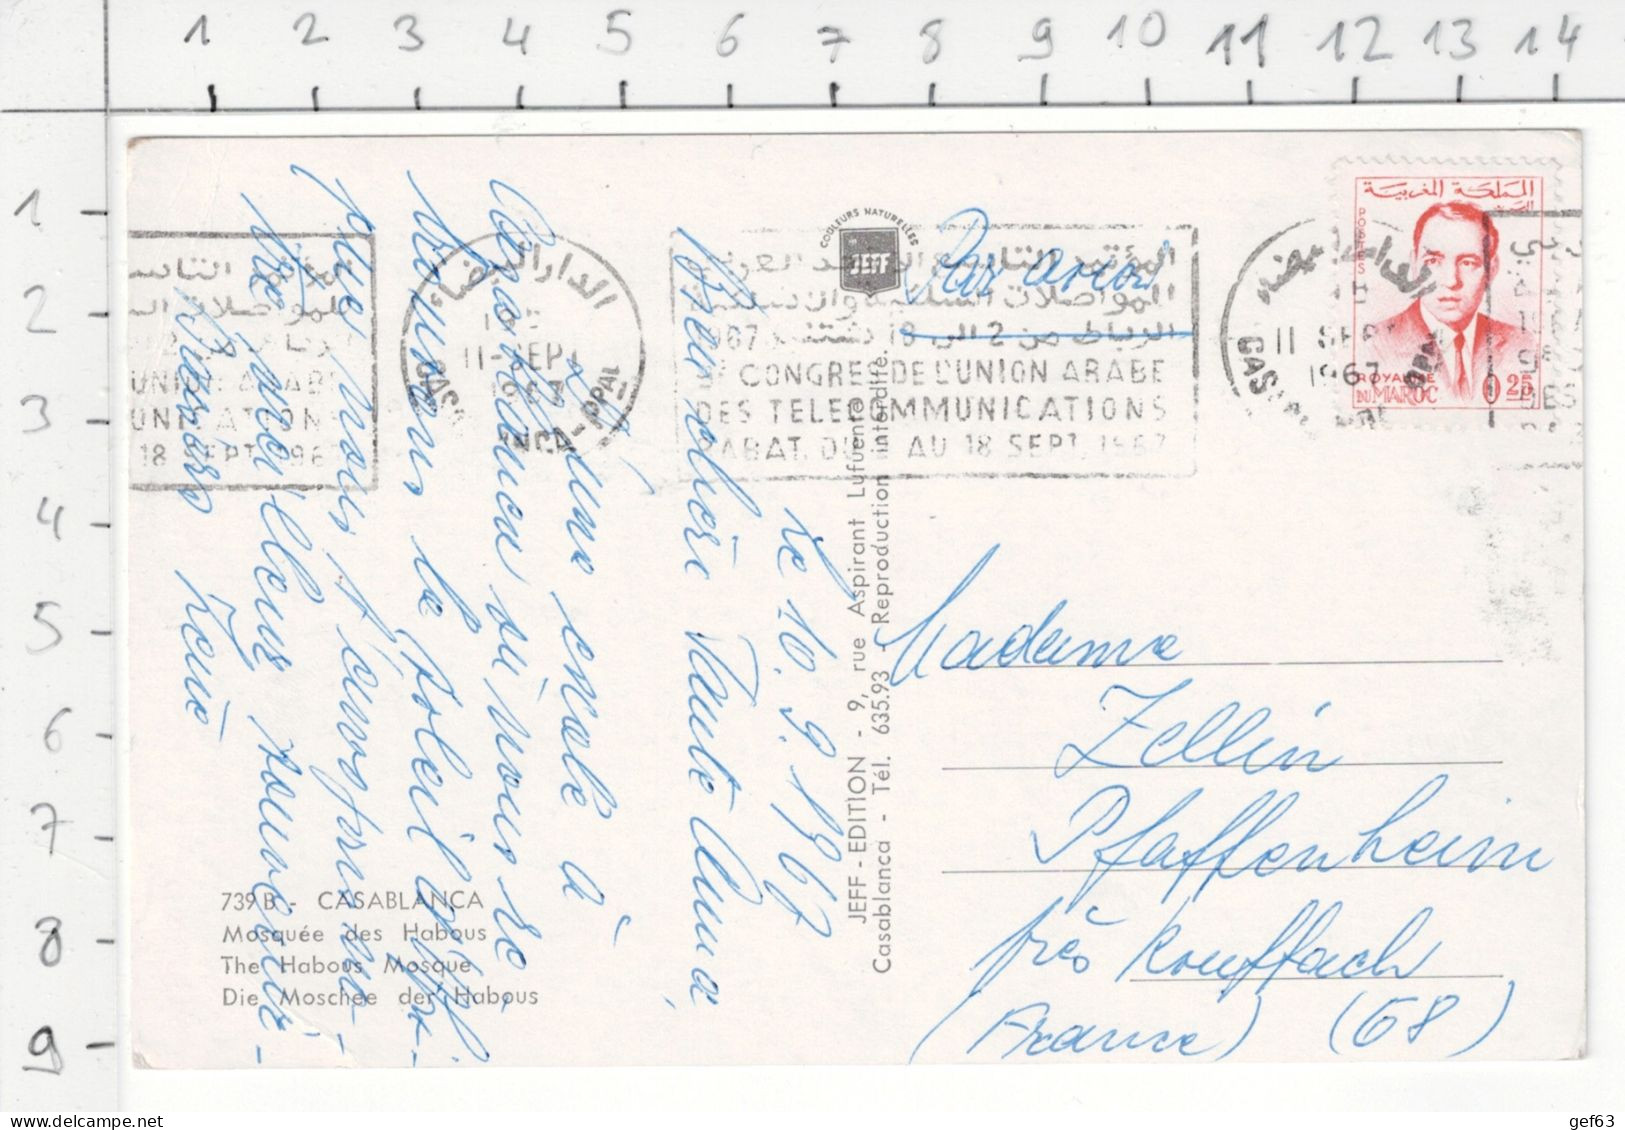 1 2 3 4 5 6 7 8 9 10 11 12 13 14
1
2
3
4
5
6
7
8
9
COULEURS NATURELLES
JEFF
Par avion
المملكة المغربية
POSTES
ROYAUME
DU MAROC
0.25
الدار البيضاء
11-SEPT
1967
CASABLANCA-PPAL
11 SEPT
1967
المؤتمر التاسع
للمواصلات السلكية واللاسلكية
الرباط من 2 الى 18 شتنبر 1967
CONGRES DE L'UNION ARABE
DES TELECOMMUNICATIONS
RABAT. DU 2 AU 18 SEPT. 1967
UNION ARABE
18 SEPT. 1967
le 10.9.1967
Bien chère Tante Anna
D'une escale à
Casablanca où nous re-
trouvons le soleil d'Afri-
que nous t'envoyons no-
tre meilleur souvenir
Baisers
JEFF - EDITION - 9, rue Aspirant Lafuente
Casablanca - Tél. 635.93 - Reproduction interdite.
Madame
Zellin
Pfaffenheim
près Rouffach
(France) (68)
739 B - CASABLANCA
Mosquée des Habous
The Habous Mosque
Die Moschee der Habous
gef63